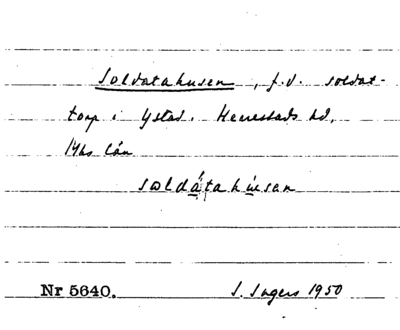 Soldatahusen, f.d. soldat-
torp i Ystad. Herrestads hd,
Mhs län
soldátahúsan
Nr 5640. S. Ingers 1950